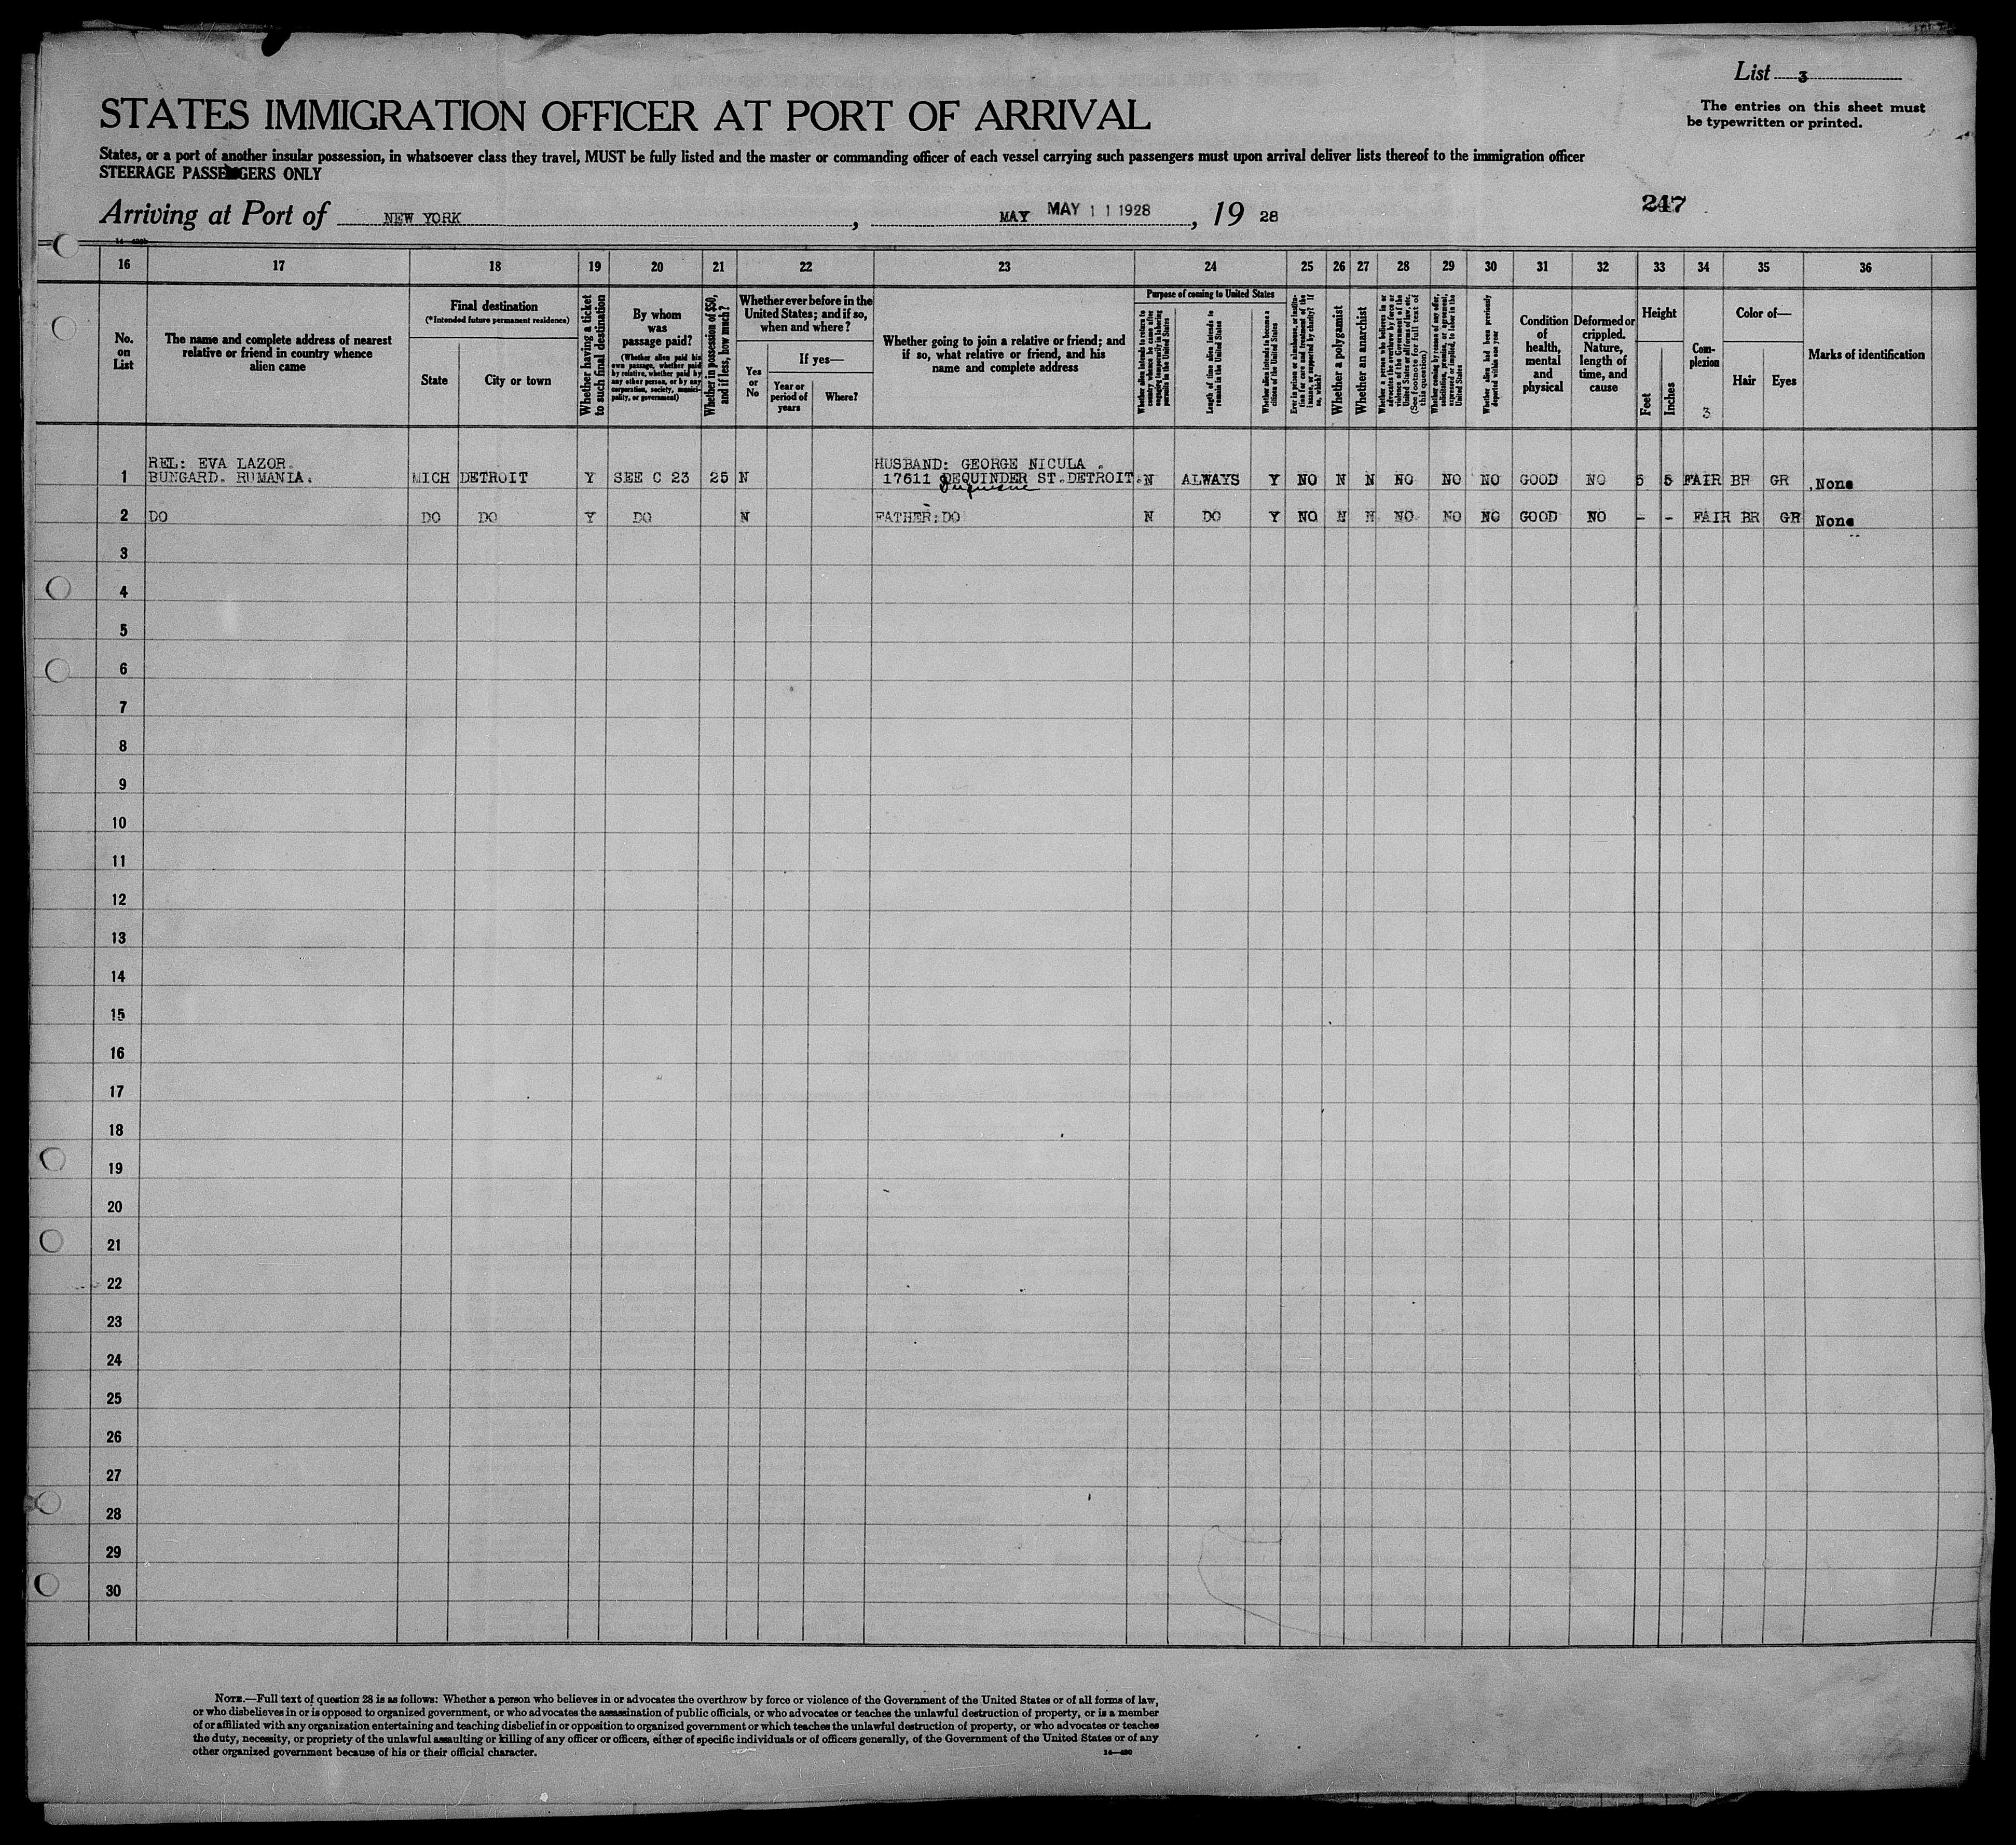 List 3
The entries on this sheet must
be typewritten or printed.
STATES IMMIGRATION OFFICER AT PORT OF ARRIVAL
States, or a port of another insular possession, in whatsoever class they travel, MUST be fully listed and the master or commanding officer of each vessel carrying such passengers must upon arrival deliver lists thereof to the immigration officer
STEERAGE PASSENGERS ONLY
Arriving at Port of NEW YORK, MAY MAY 11 1928, 19 28
247
16 17 18 19 20 21 22 23 24 25 26 27 28 29 30 31 32 33 34 35 36
No.
on
List
The name and complete address of nearest
relative or friend in country whence
alien came
Final destination
(*Intended future permanent residence)
State
City or town
Whether having a ticket
to such final destination
By whom
was
passage paid?
(Whether alien paid his
own passage, whether paid
by relative, whether paid by
any other person, or by any
corporation, society, munici-
pality, or government)
Whether in possession of $50,
and if less, how much?
Whether ever before in the
United States; and if so,
when and where?
Yes
or
No
If yes—
Year or
period of
years
Where?
Whether going to join a relative or friend; and
if so, what relative or friend, and his
name and complete address
Purpose of coming to United States
Whether alien intends to return to
country whence he came after
engaging temporarily in laboring
pursuits in the United States
Length of time alien intends to
remain in the United States
Whether alien intends to become a
citizen of the United States
Ever in prison or almshouse, or institu-
tion for care and treatment of the
insane, or supported by charity? If
so, which?
Whether a polygamist
Whether an anarchist
Whether a person who believes in or
advocates the overthrow by force or
violence of the Government of the
United States or all forms of law, etc.
(See footnote for full text of
this question)
Whether coming by reason of any offer,
solicitation, promise, or agreement,
expressed or implied, to labor in the
United States
Whether alien had been previously
deported within one year
Condition
of
health,
mental
and
physical
Deformed or
crippled.
Nature,
length of
time, and
cause
Height
Feet
Inches
Com-
plexion
3
Color of—
Hair
Eyes
Marks of identification
REL: EVA LAZOR. HUSBAND: GEORGE NICULA .
1 BUNGARD. RUMANIA. MICH DETROIT Y SEE C 23 25 N 17611 DEQUINDER ST. DETROIT. N ALWAYS Y NO N N NO NO NO GOOD NO 5 5 FAIR BR GR None
Duquesne
2 DO DO DO Y DO N FATHER: DO N DO Y NO N N NO NO NO GOOD NO - - FAIR BR GR None
3
4
5
6
7
8
9
10
11
12
13
14
15
16
17
18
19
20
21
22
23
24
25
26
27
28
29
30
NOTE.—Full text of question 28 is as follows: Whether a person who believes in or advocates the overthrow by force or violence of the Government of the United States or of all forms of law,
or who disbelieves in or is opposed to organized government, or who advocates the assassination of public officials, or who advocates or teaches the unlawful destruction of property, or is a member
of or affiliated with any organization entertaining and teaching disbelief in or opposition to organized government or which teaches the unlawful destruction of property, or who advocates or teaches
the duty, necessity, or propriety of the unlawful assaulting or killing of any officer or officers, either of specific individuals or of officers generally, of the Government of the United States or of any
other organized government because of his or their official character.
14—430